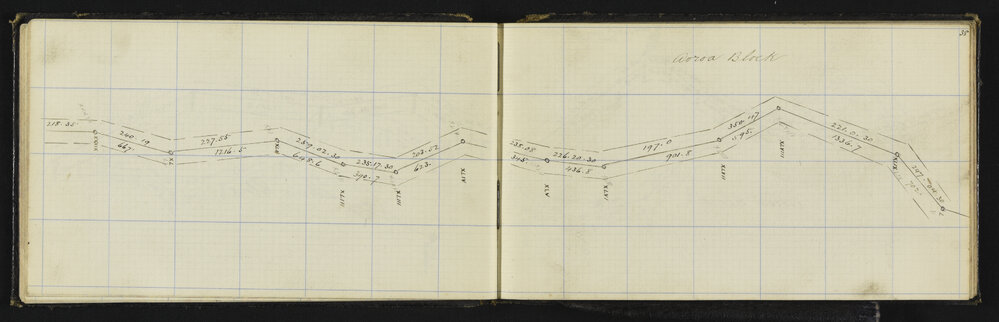 35
Aoroa Block
218.35
XXXIX
240.19
667.
XL
227.55
1216.5
XLI
259.02.30
648.6
XLII
235.17.30
390.7
XLIII
203.52
623.
XLIV
238.08
345
XLV
226.20.30
436.8
XLVI
197.0
901.8
XLVII
354.107
595.
XLVIII
221.0.30
1336.7
XLIX
247.04.30
702.
L